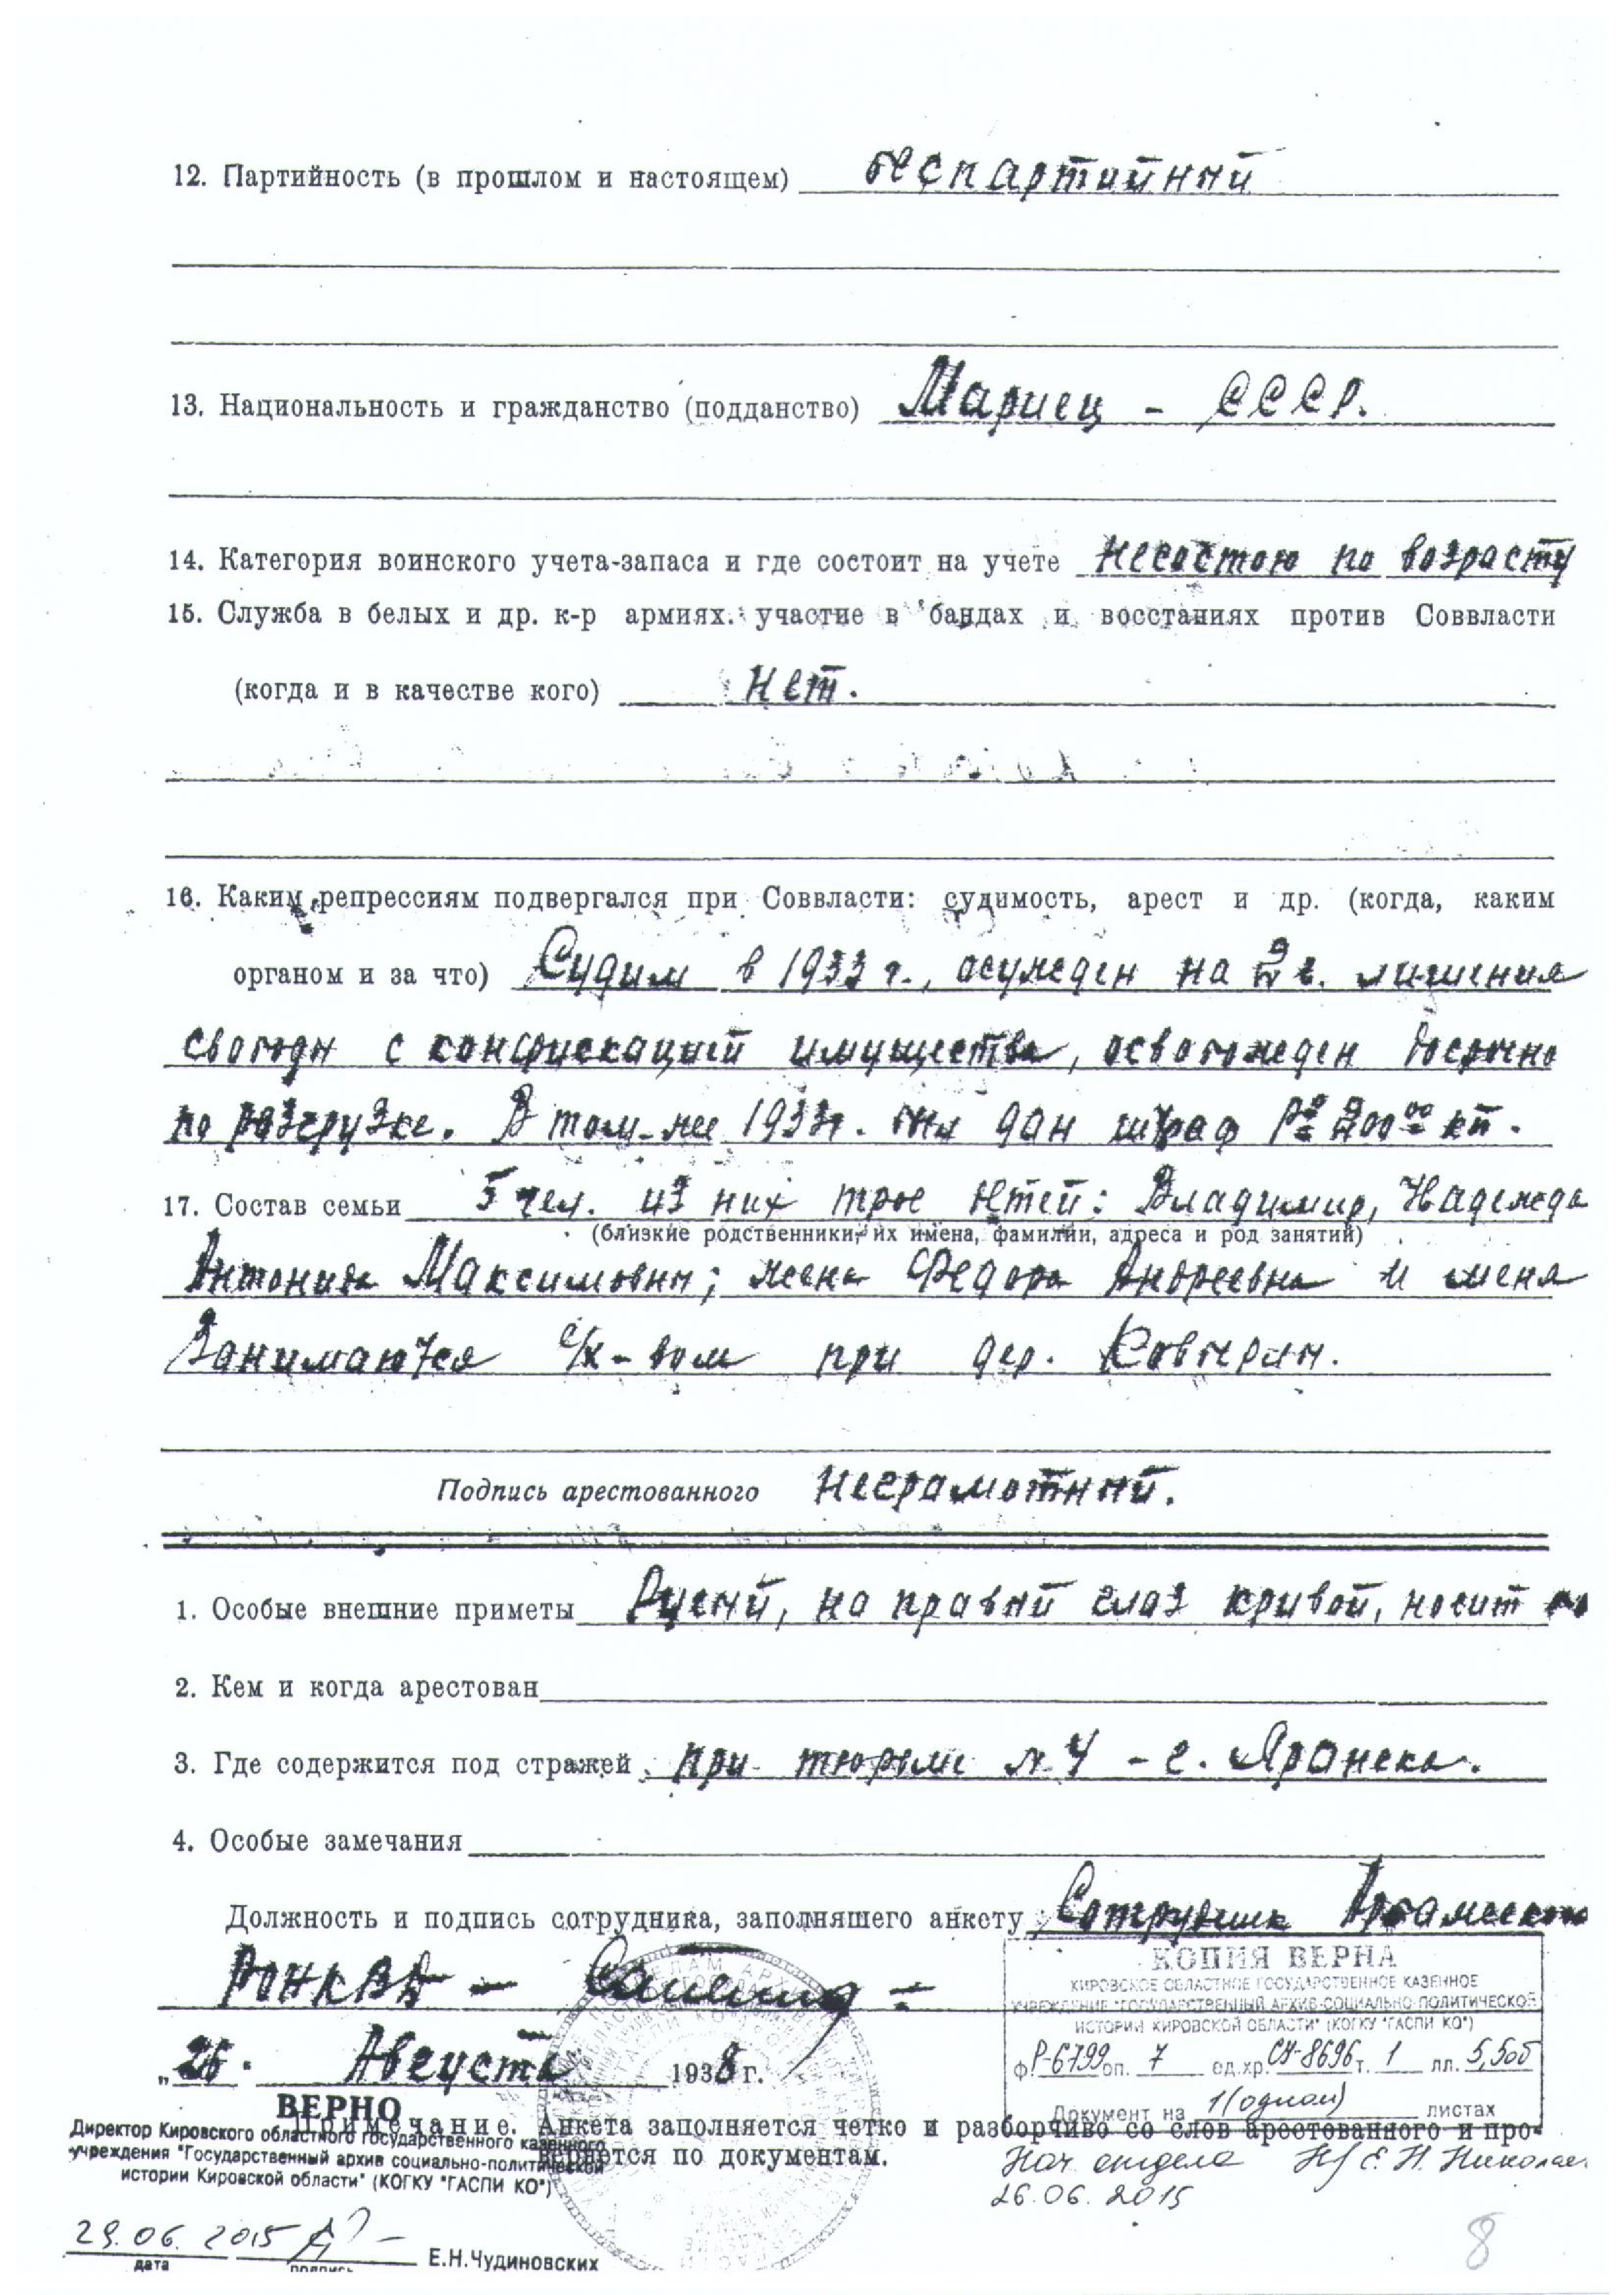 12. Партийность (в прошлом и настоящем) беспартийный
13. Национальность и гражданство (подданство) Мариец - СССР.
14. Категория воинского учета-запаса и где состоит на учете несостою по возрасту
15. Служба в белых и др. к-р армиях. участие в бандах и восстаниях против Соввласти
(когда и в качестве кого) Нет.
16. Каким репрессиям подвергался при Соввласти: судимость, арест и др. (когда, каким
органом и за что) Судим в 1933 г., осужден на г. лишения
свободы с конфискацией имущества, освобожден досрочно
по разгрузке. В том-же 1933г. был дан штраф
17. Состав семьи 5 чел. из них трое детей: Владимир, Надежда
(близкие родственники, их имена, фамилии, адреса и род занятий)
Антонида Максимовны; жена Федора Андреевна и меня
Занимаются с/х-вом при дер.
Подпись арестованного неграмотный.
1. Особые внешние приметы Русый, на правый глаз кривой, носит
2. Кем и когда арестован
3. Где содержится под стражей при тюрьме №4 - г. Яранска.
4. Особые замечания
Должность и подпись сотрудника, заполнящего анкету Сотрудник
РОНКВД -
КОПИЯ ВЕРНА
КИРОВСКОЕ ОБЛАСТНОЕ ГОСУДАРСТВЕННОЕ КАЗЕННОЕ
УЧРЕЖДЕНИЕ "ГОСУДАРСТВЕННЫЙ АРХИВ СОЦИАЛЬНО-ПОЛИТИЧЕСКОЙ
ИСТОРИИ КИРОВСКОЙ ОБЛАСТИ" (КОГКУ "ГАСПИ КО")
ф. Р-6799 оп. 7 ед.хр. СУ-8696 т. 1 лл. 5, 5об
Документ на 1(одном) листах
„26" Августа 1938 г.
ВЕРНО
Примечание. Анкета заполняется четко и разборчиво со слов арестованного и про-
веряется по документам.
Директор Кировского областного государственного казенного
учреждения "Государственный архив социально-политической
истории Кировской области" (КОГКУ "ГАСПИ КО")
Нач. отдела Е. Н.
26.06.2015
29.06.2015 Е.Н.Чудиновских
дата подпись
8